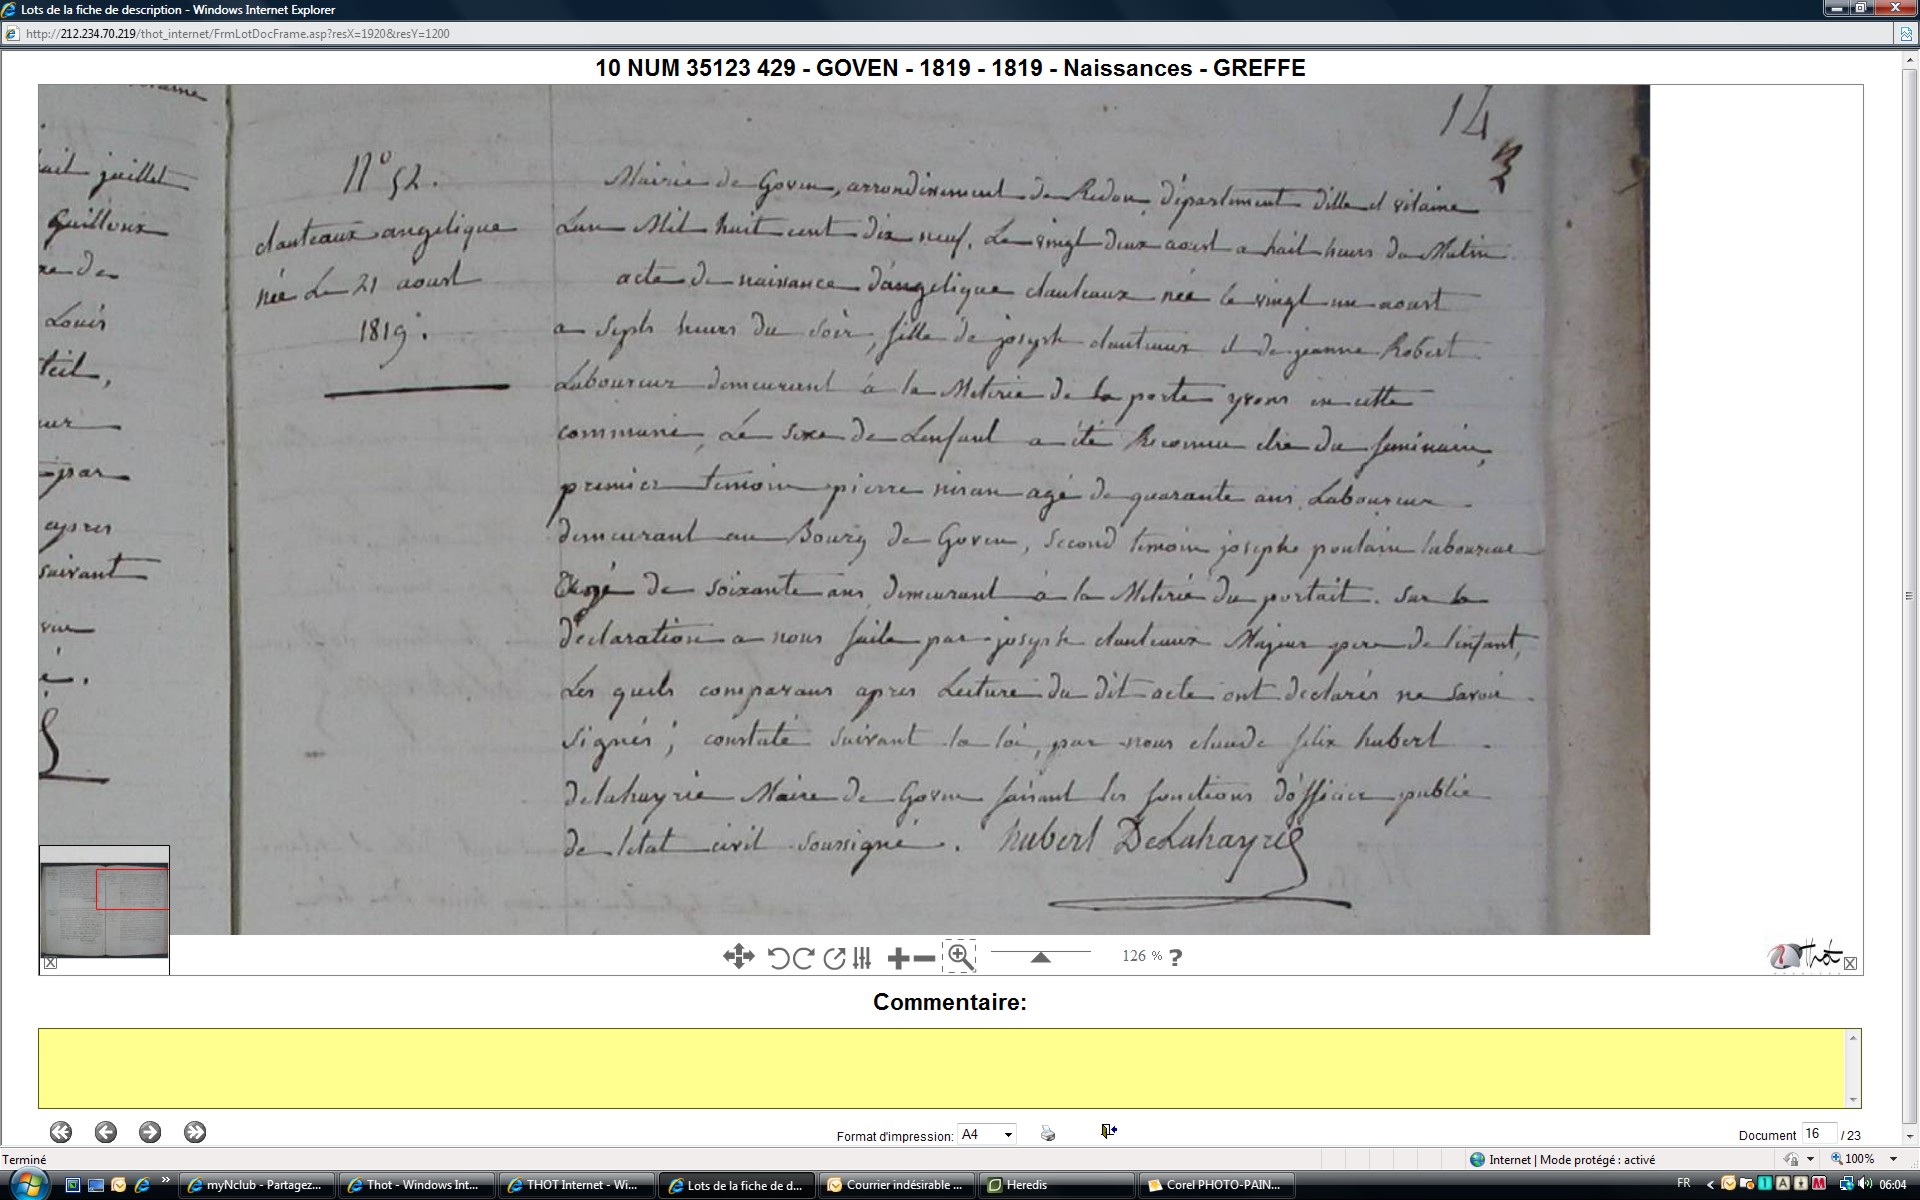 Lots de la fiche de description - Windows Internet Explorer
http://212.234.70.219/thot_internet/FrmLotDocFrame.asp?resX=1920&resY=1200
10 NUM 35123 429 - GOVEN - 1819 - 1819 - Naissances - GREFFE
14
juillet
Guilloux
Louis
par
apres
suivant
N° 52.
dauteaux angelique
née Le 21 aoust
1819.
Mairie de Goven, arrondissement de Redon, département dille et vilaine
Lan Mil huit cent dix neuf. Le vingt deux aoust a huit heurs du Matin
acte de naissance d'angelique dauteaux née le vingt un aoust
a septs heurs du soir, fille de joseph dauteaux et de jeanne Robert
Laboureur demeurant à la Meterie de la porte en cette
commune, Le sexe de Lenfant a été Reconnu etre du feminain,
premier temoin pierre agé de quarante ans Laboureur
demeurant au Bourg de Goven, second temoin josephe poulain laboureur
agé de soixante ans demeurant à la Meterié du portait. sur la
déclaration a nous faite par joseph dauteaux Majeur pere de lenfant,
Les quels comparans apres Lecture du dit acte ont declarés ne savoir
signés ; constaté suivant la loi, par nous claude felix hubert
delahayrie Maire de Goven faisant les fonctions d'officier public
de letat civil soussigné. hubert DeLahayrie
126 % ?
Thot
Commentaire:
Format d'impression: A4
Document 16 / 23
Terminé
Internet | Mode protégé : activé
100%
myNclub - Partagez...
Thot - Windows Int...
THOT Internet - Wi...
Lots de la fiche de d...
Courrier indésirable ...
Heredis
Corel PHOTO-PAIN...
FR
06:04